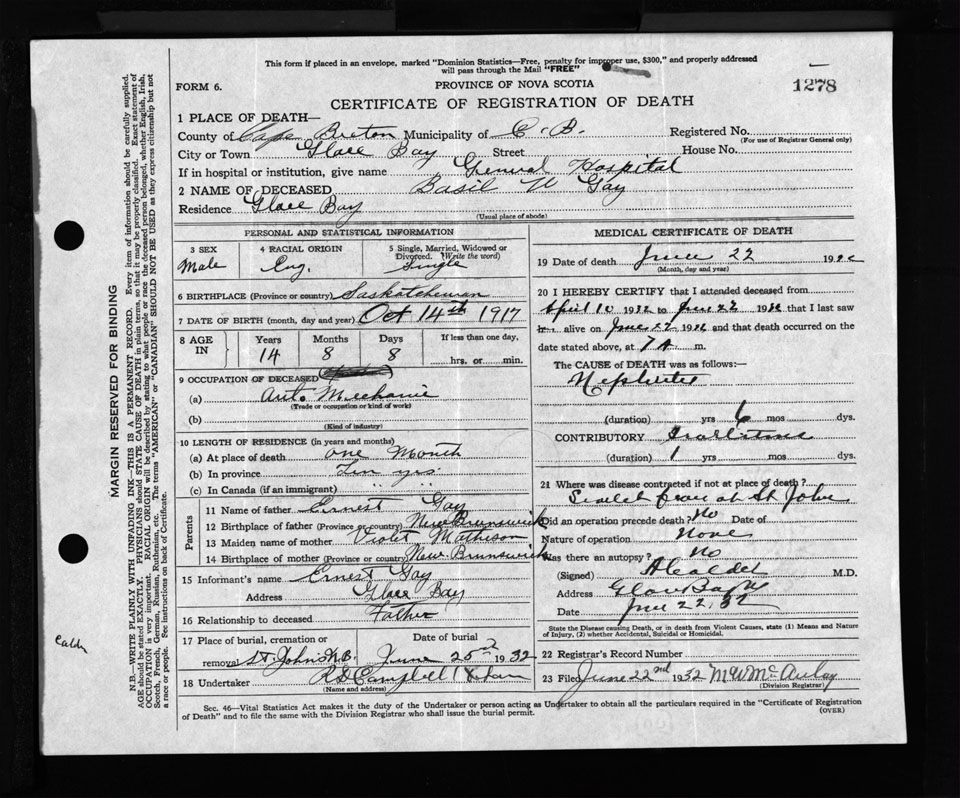 This form if placed in an envelope, marked "Dominion Statistics—Free, penalty for improper use, $300," and properly addressed
will pass through the Mail "FREE"
1278
FORM 6.
PROVINCE OF NOVA SCOTIA
CERTIFICATE OF REGISTRATION OF DEATH
1 PLACE OF DEATH—
County of Cape Breton Municipality of C. B. Registered No.
(For use of Registrar General only)
City or Town Glace Bay Street House No.
If in hospital or institution, give name General Hospital
2 NAME OF DECEASED Basil W Gay
Residence Glace Bay
(Usual place of abode)
PERSONAL AND STATISTICAL INFORMATION
3 SEX
Male
4 RACIAL ORIGIN
Eng.
5 Single, Married, Widowed or
Divorced. (Write the word)
Single
6 BIRTHPLACE (Province or country) Saskatchewan
7 DATE OF BIRTH (month, day and year) Oct 14th 1917
8 AGE
IN
Years Months Days
14 8 8
If less than one day,
hrs. or min.
9 OCCUPATION OF DECEASED
(a) Auto Mechanic
(Trade or occupation or kind of work)
(b)
(Kind of industry)
10 LENGTH OF RESIDENCE (in years and months)
(a) At place of death one Month
(b) In province Ten yrs.
(c) In Canada (if an immigrant) " " "
Parents
11 Name of father Ernest Gay
12 Birthplace of father (Province or country) New Brunswick
13 Maiden name of mother Violet Matheson
14 Birthplace of mother (Province or country) New Brunswick
15 Informant's name Ernest Gay
Address Glace Bay
16 Relationship to deceased Father
17 Place of burial, cremation or
removal St. John N.B.
Date of burial
June 25th 1932
18 Undertaker
(Name and address)
MEDICAL CERTIFICATE OF DEATH
19 Date of death June 22 1932
(Month, day and year)
20 I HEREBY CERTIFY that I attended deceased from
April 10 1932 to June 22 1932 that I last saw
h alive on June 22 1932 and that death occurred on the
date stated above, at 7 A m.
The CAUSE of DEATH was as follows:—
Nephritis
(duration) yrs 6 mos dys.
CONTRIBUTORY Scarlatina
(duration) 1 yrs mos dys.
21 Where was disease contracted if not at place of death?
Scarlet fever at St John
Did an operation precede death? No Date of
Nature of operation None
Was there an autopsy? No
(Signed) M.D.
Address Glace Bay
Date June 22, 32
State the Disease causing Death, or in death from Violent Causes, state (1) Means and Nature
of Injury, (2) whether Accidental, Suicidal or Homicidal.
22 Registrar's Record Number
23 Filed June 22nd 1932 M W McAulay
(Division Registrar)
Sec. 46—Vital Statistics Act makes it the duty of the Undertaker or person acting as Undertaker to obtain all the particulars required in the "Certificate of Registration
of Death" and to file the same with the Division Registrar who shall issue the burial permit.
(OVER)
MARGIN RESERVED FOR BINDING
N.B.—WRITE PLAINLY WITH UNFADING INK—THIS IS A PERMANENT RECORD. Every item of information should be carefully supplied.
AGE should be stated EXACTLY. PHYSICIANS should STATE CAUSE OF DEATH in plain terms, so that it may be properly classified. Exact statement of
OCCUPATION is very important. RACIAL ORIGIN will be described by stating to what people or race the deceased person belonged, whether English, Irish,
Scotch, French, German, Russian, Ruthenian, etc. The terms "AMERICAN" or "CANADIAN" SHOULD NOT BE USED as they express citizenship but not
a race or people. See instructions on back of Certificate.